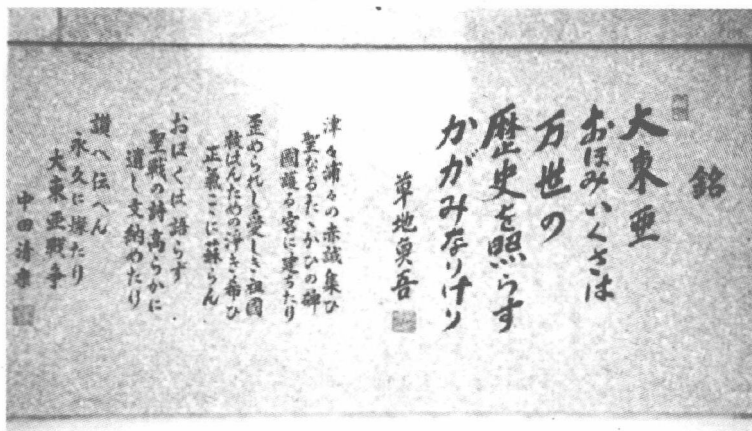 銘
大東亜
おほみいくさは
万世の
歴史を照らす
かがみなりけり
草地貞吾
津々浦々の赤誠集ひ
聖なるたゝかひの碑
國護る宮に建ちたり
歪められし愛しき祖國
救はんための浄き希ひ
正氣こゝに蘇らん
おほくは語らず
聖戦の詩高らかに
遺し文納めたり
讃へ伝へん
永久に燦たり
大東亜戦争
中田清康